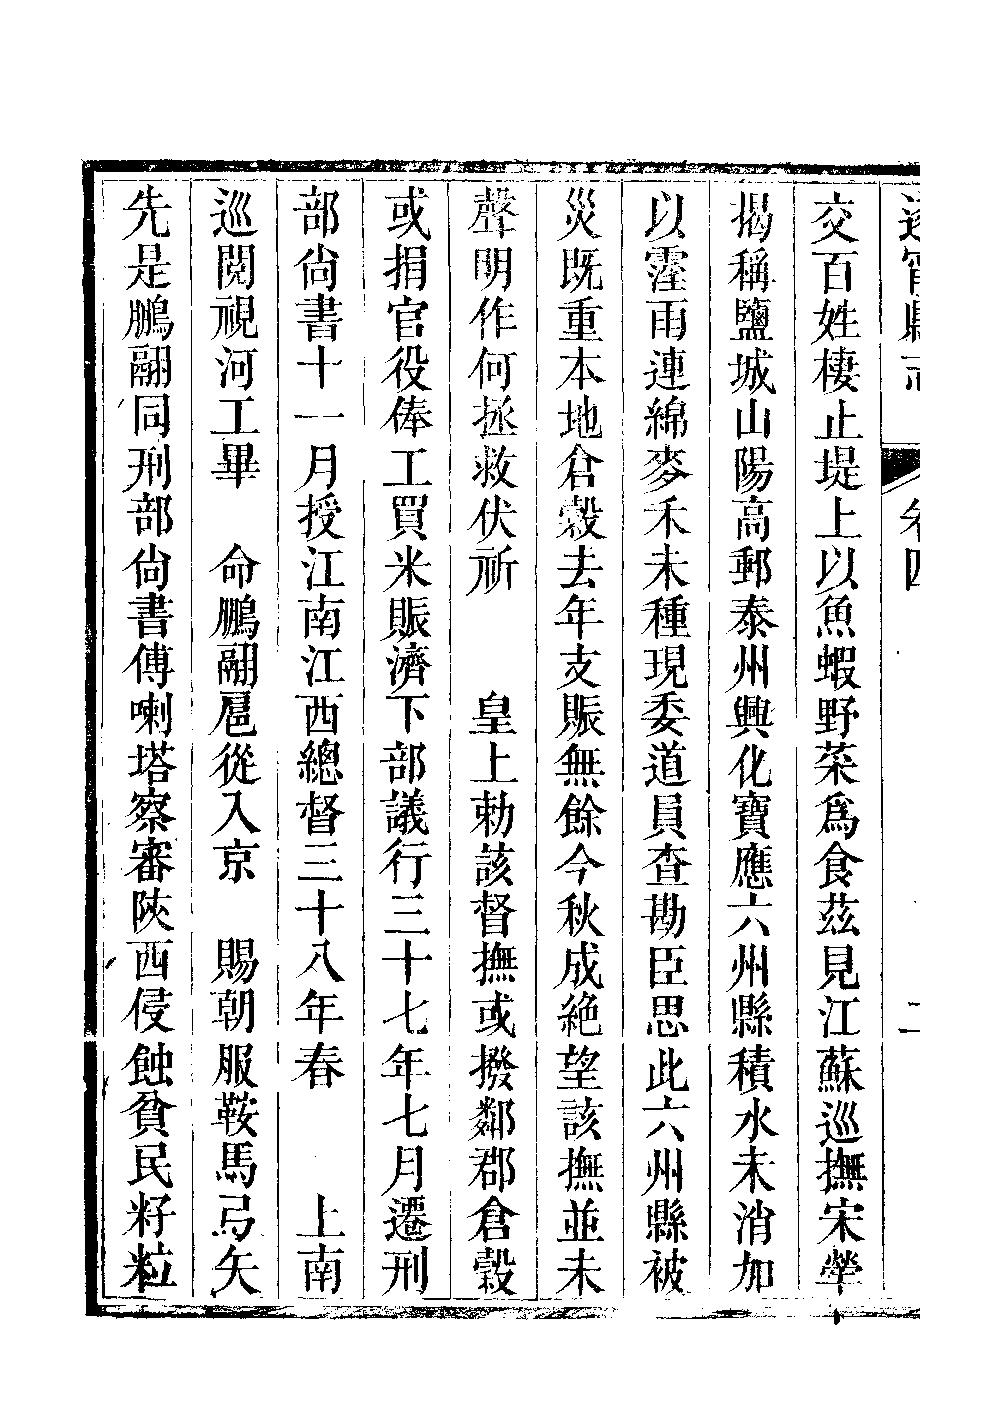 遂寧縣志 卷四 二
交百姓棲止堤上以魚蝦野菜爲食茲見江蘇巡撫宋犖
揭稱鹽城山陽高郵泰州興化寶應六州縣積水未消加
以霪雨連綿麥禾未種現委道員查勘臣思此六州縣被
災既重本地倉穀去年支賑無餘今秋成絶望該撫並未
聲明作何拯救伏祈 皇上勅該督撫或撥鄰郡倉穀
或捐官役俸工買米賑濟下部議行三十七年七月遷刑
部尚書十一月授江南江西總督三十八年春 上南
巡閱視河工畢 命鵬翮扈從入京 賜朝服鞍馬弓矢
先是鵬翮同刑部尚書傅喇塔察審陝西侵蝕貧民籽粒